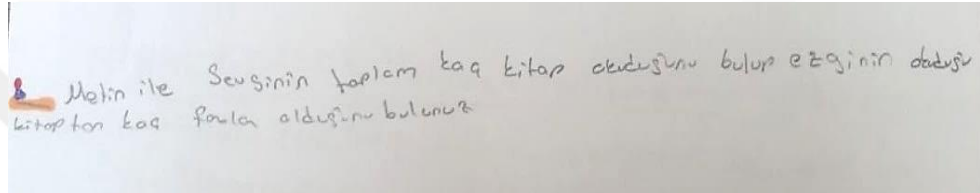 Metin ile Sevginin toplam kaç kitap okuduğunu bulup ezginin okuduğu
kitaptan kaç fazla olduğunu bulunuz